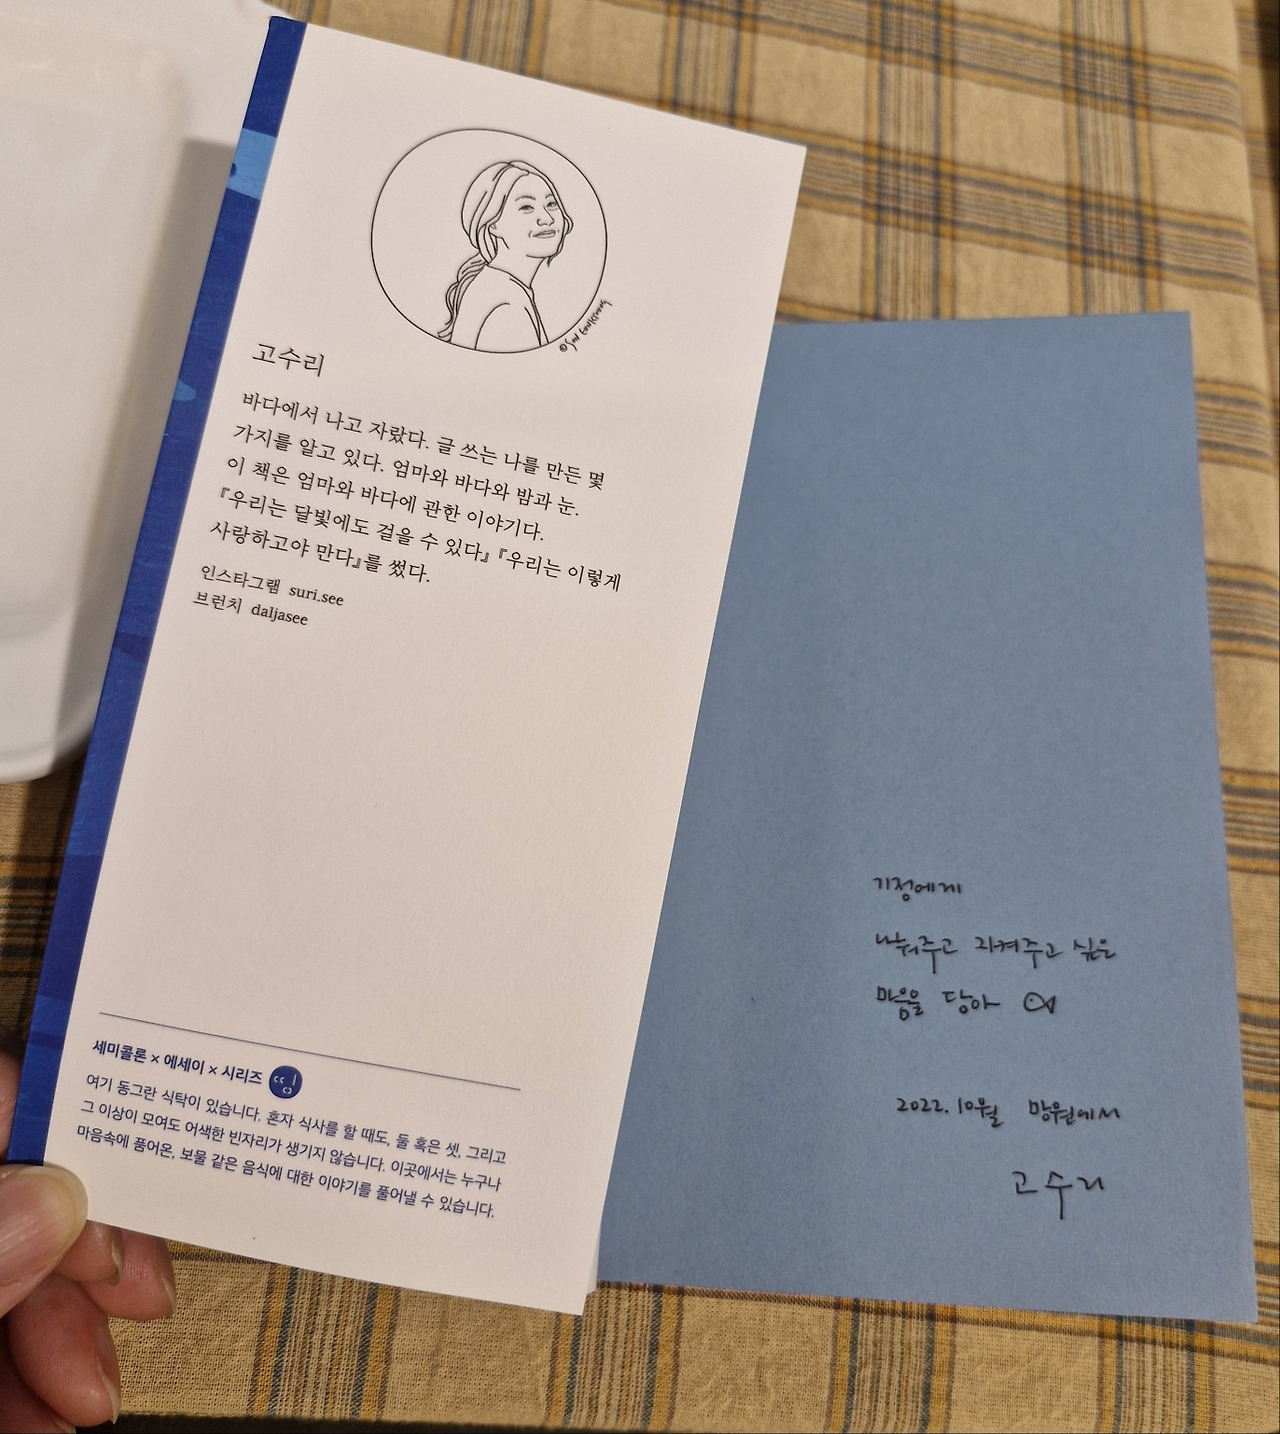 고수리
바다에서 나고 자랐다. 글 쓰는 나를 만든 몇
가지를 알고 있다. 엄마와 바다와 밤과 눈.
이 책은 엄마와 바다에 관한 이야기다.
『우리는 달빛에도 걸을 수 있다』 『우리는 이렇게
사랑하고야 만다』를 썼다.
인스타그램 suri.see
브런치 daljasee
세미콜론 × 에세이 × 시리즈 띵
여기 동그란 식탁이 있습니다. 혼자 식사를 할 때도, 둘 혹은 셋, 그리고
그 이상이 모여도 어색한 빈자리가 생기지 않습니다. 이곳에서는 누구나
마음속에 품어온, 보물 같은 음식에 대한 이야기를 풀어낼 수 있습니다.
기정에게
나눠주고 지켜주고 싶은
마음을 담아
2022. 10월 망원에서
고수리